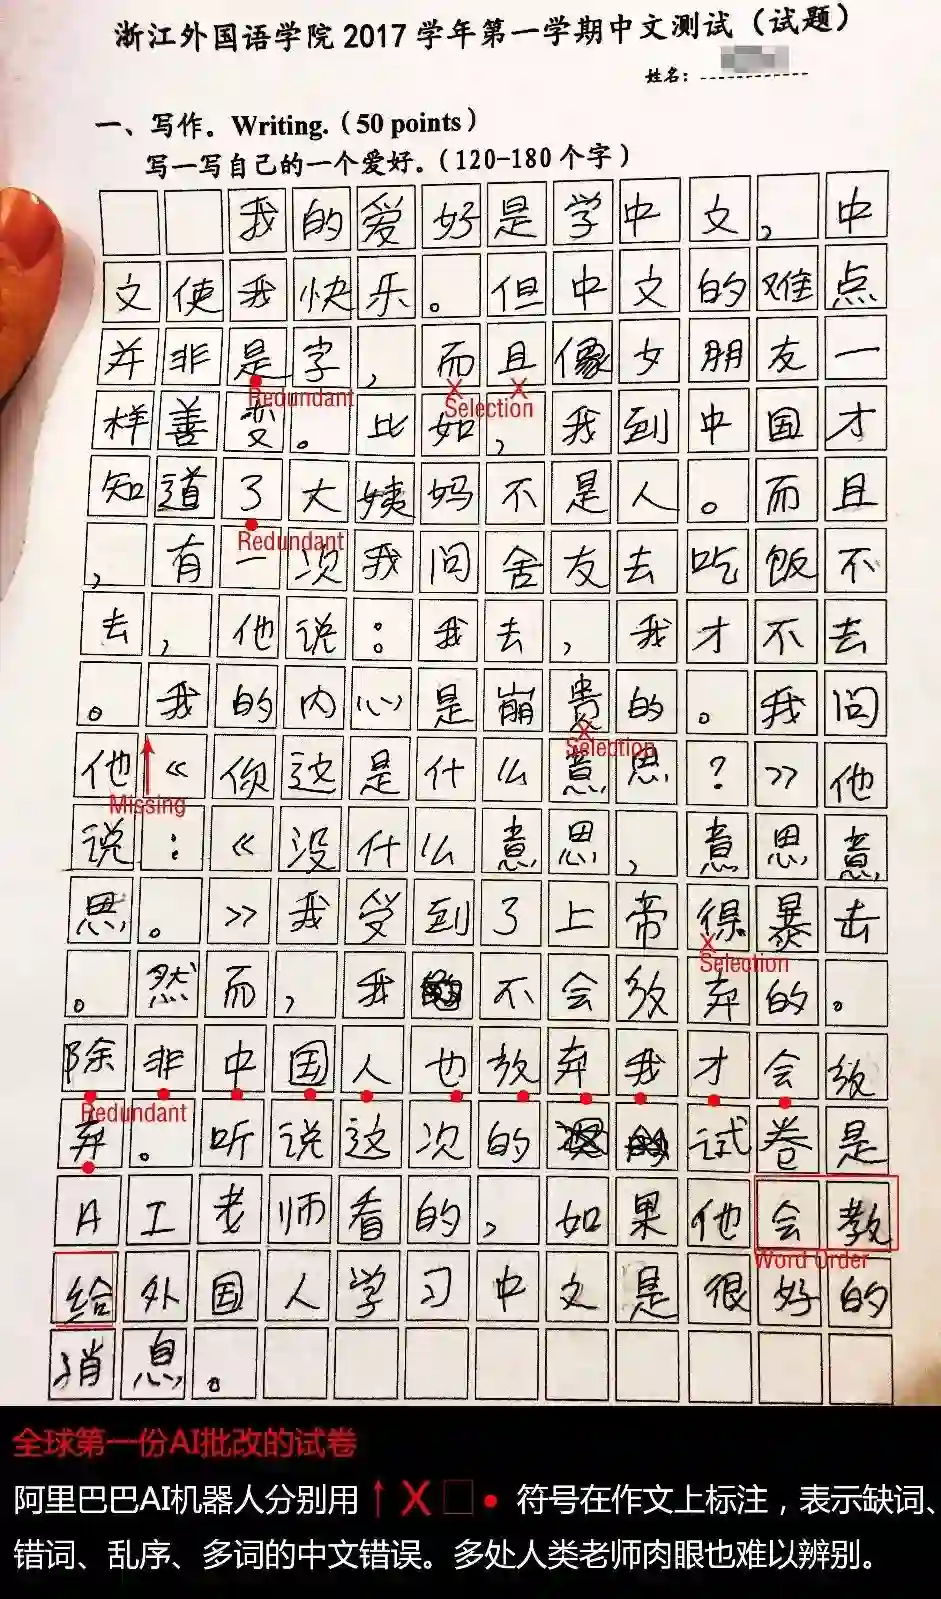 浙江外国语学院 2017 学年第一学期中文测试（试题）
姓名：
一、写作。Writing.（50 points）
写一写自己的一个爱好。（120-180 个字）
我的爱好是学中文，中
文使我快乐。但中文的难点
并非是字，而且像女朋友一
Redundant
Selection
样善变。比如，我到中国才
知道了大姨妈不是人。而且
Redundant
，有一次我问舍友去吃饭不
去，他说：我去，我才不去
。我的内心是崩贵的。我问
Selection
他《你这是什么意思？》他
Missing
说：《没什么意思，意思意
思。》我受到了上帝得暴击
Selection
。然而，我不会放弃的。
除非中国人也放弃我才会放
Redundant
弃。听说这次的试卷是
AI老师看的，如果他会教
Word Order
给外国人学习中文是很好的
消息。
全球第一份AI批改的试卷
阿里巴巴AI机器人分别用↑X□● 符号在作文上标注，表示缺词、
错词、乱序、多词的中文错误。多处人类老师肉眼也难以辨别。